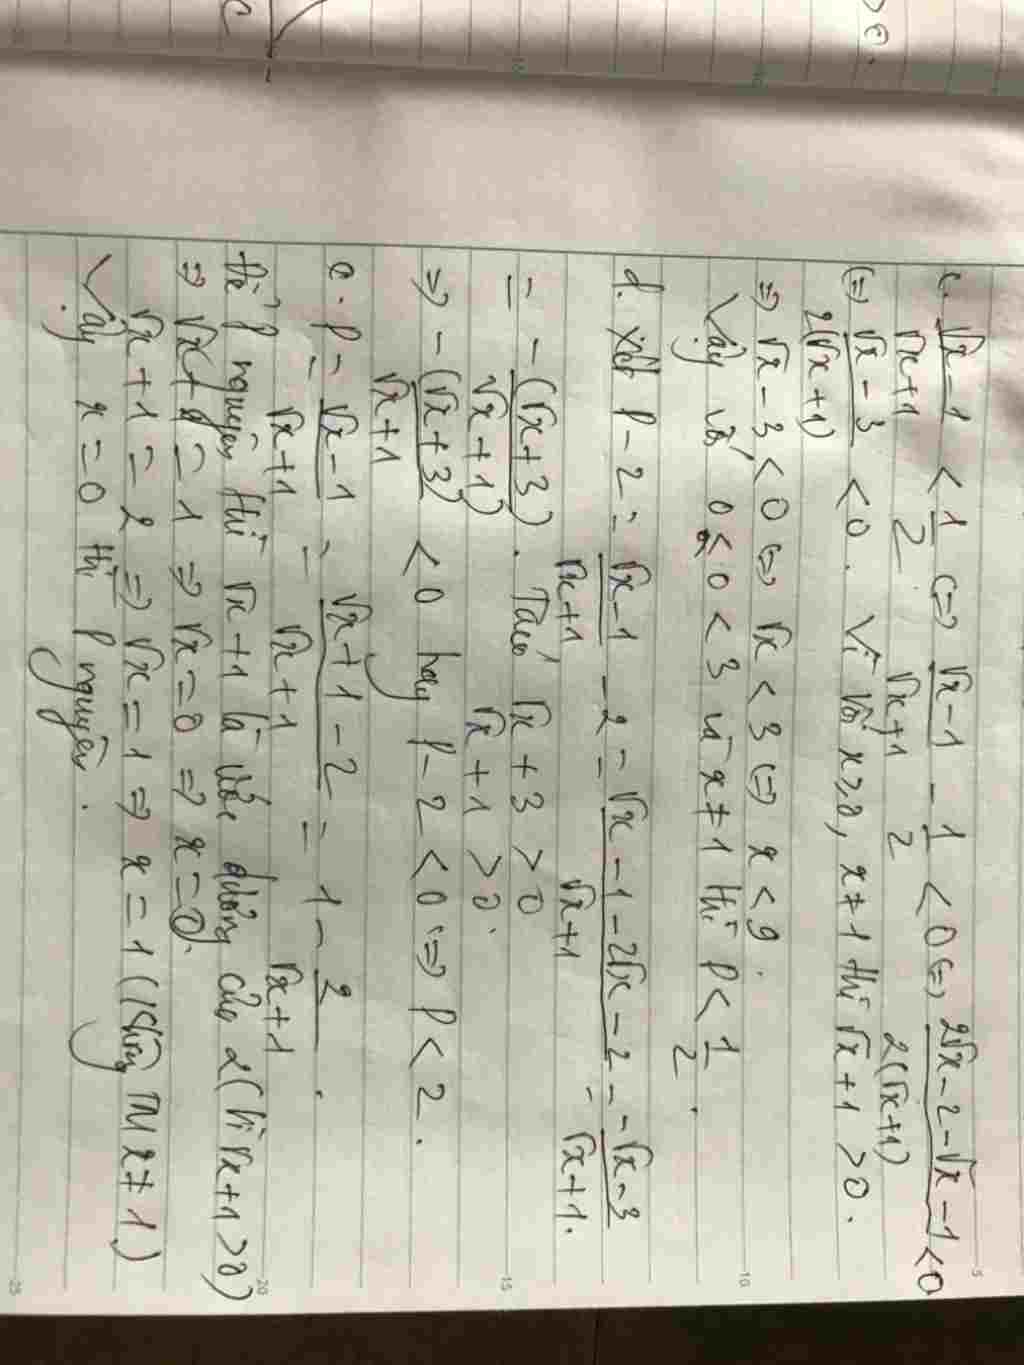 c. √x-1/√x+1 < 1/2 (=) √x-1/√x+1 - 1/2 < 0 (=) 2√x-2-√x-1/2(√x+1) < 0
(=) √x-3/2(√x+1) < 0. Vì với x≥0, x≠1 thì √x+1 >0.
=> √x-3<0 (=) √x < 3 (=) x < 9.
Vậy với 0≤0<3 và x≠1 thì P<1/2.
d. xét P-2 = √x-1/√x+1 -2 = √x-1-2√x-2/√x+1 = -√x-3/√x+1.
= -(√x+3)/(√x+1). Ta có √x+3 >0
√x+1 >0.
=> -(√x+3)/√x+1 <0 hay P-2<0 (=) P<2.
e. P = √x-1/√x+1 = √x+1-2/√x+1 = 1 - 2/√x+1.
Để P nguyên thì √x+1 là ước dương của 2 (vì √x+1>0)
=> √x+1=1 => √x=0 => x=0.
√x+1=2 => √x=1 => x=1 (không TM x≠1)
Vậy x=0 thì P nguyên.
C
5
10
15
20
25